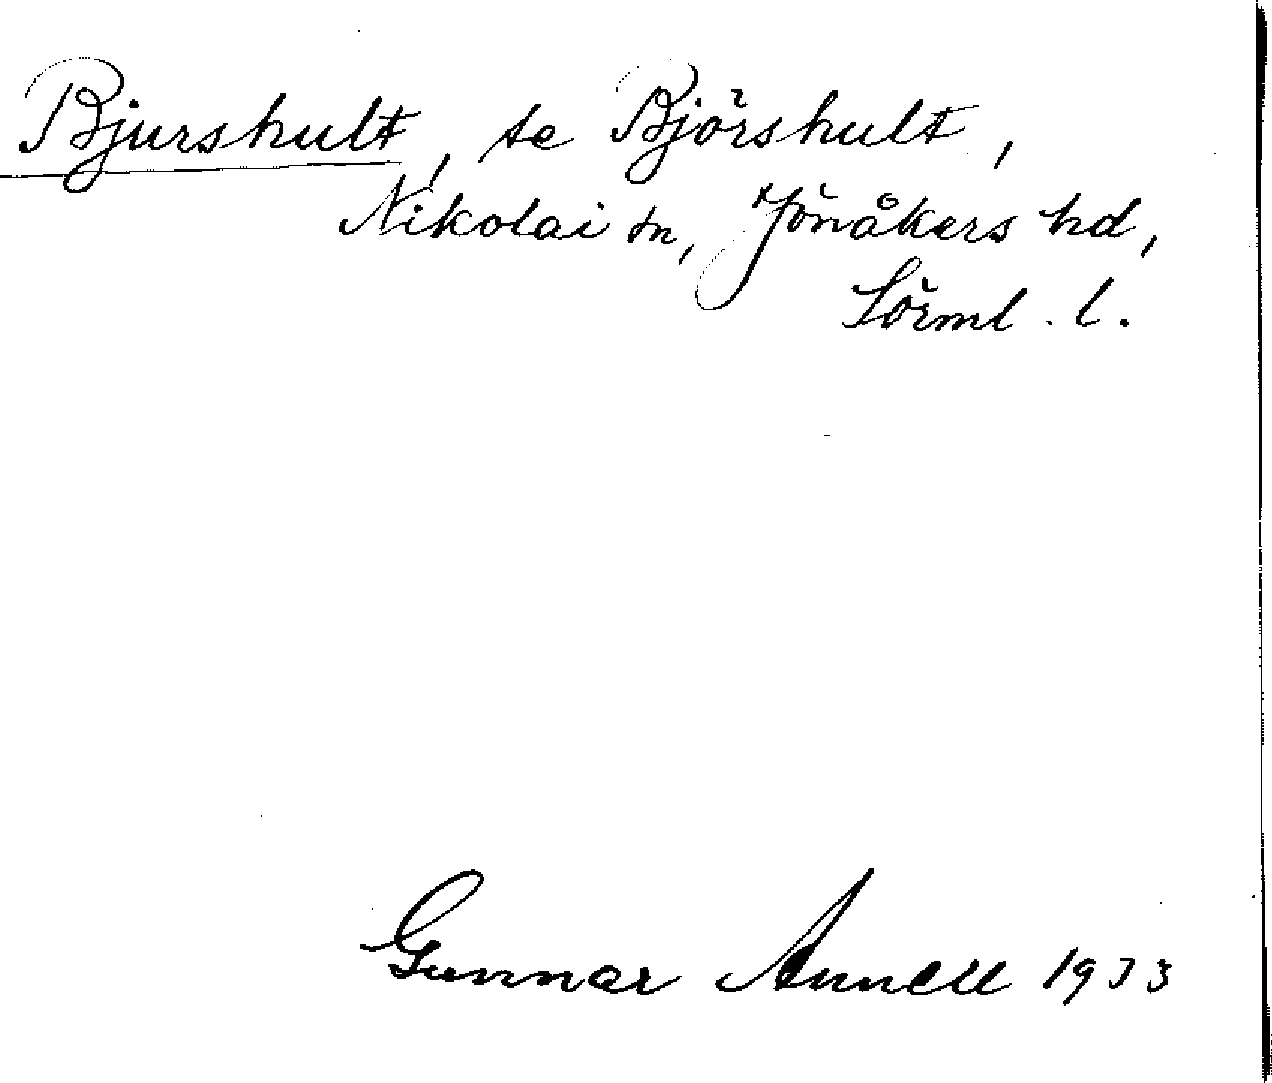 Bjurshult, se Björshult,
Nikolai sn, Jönåkers hd,
Sörml. l.
Gunnar Annell 1933